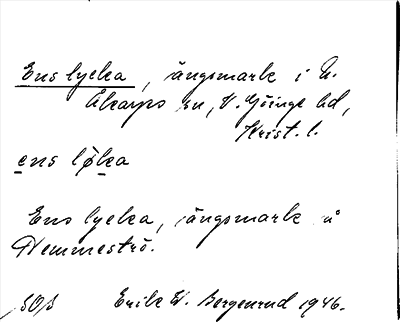 Ens lycka, ängsmark i N.
Åkarps sn, V. Göinge hd,
Krist. l.
ens løka
Ens lycka, ängsmark å
Hemmeströ.
Erik W. Bergenrud 1946.